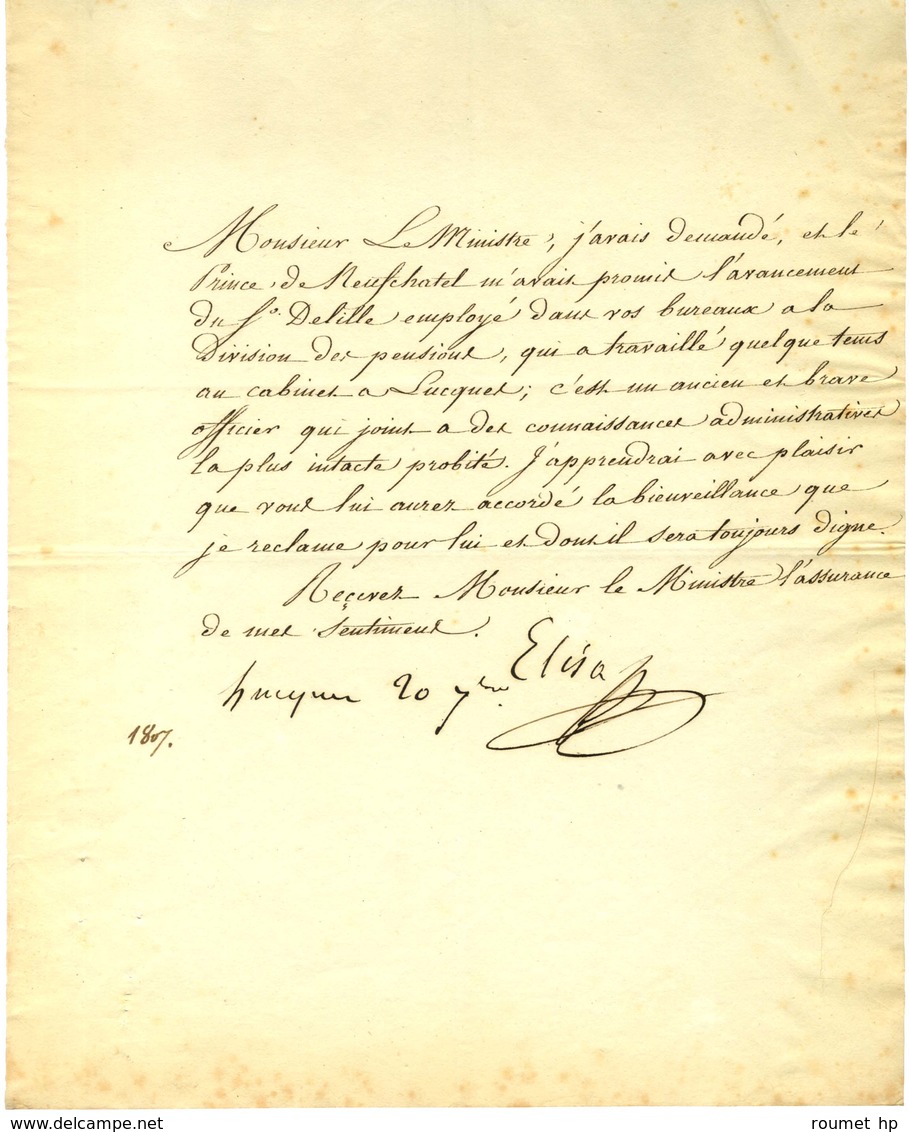 Monsieur Le Ministre, j'avais demandé, et le
Prince de Neufchatel m'avait promis l'avancement
du Sr. Delille employé dans vos bureaux a la
Division des pensions, qui a travaillé quelque tems
au cabinet a Lucques; c'est un ancien et brave
officier qui joint a des connaissances administratives
la plus intacte probité. J'apprendrai avec plaisir
que vous lui aurez accordé la bienveillance que
je reclame pour lui et dont il sera toujours digne.
Recevez Monsieur le Ministre l'assurance
de mes sentiments.
Elisa
Lucques 20 7bre
1807.
delcampe.net
roumet hp